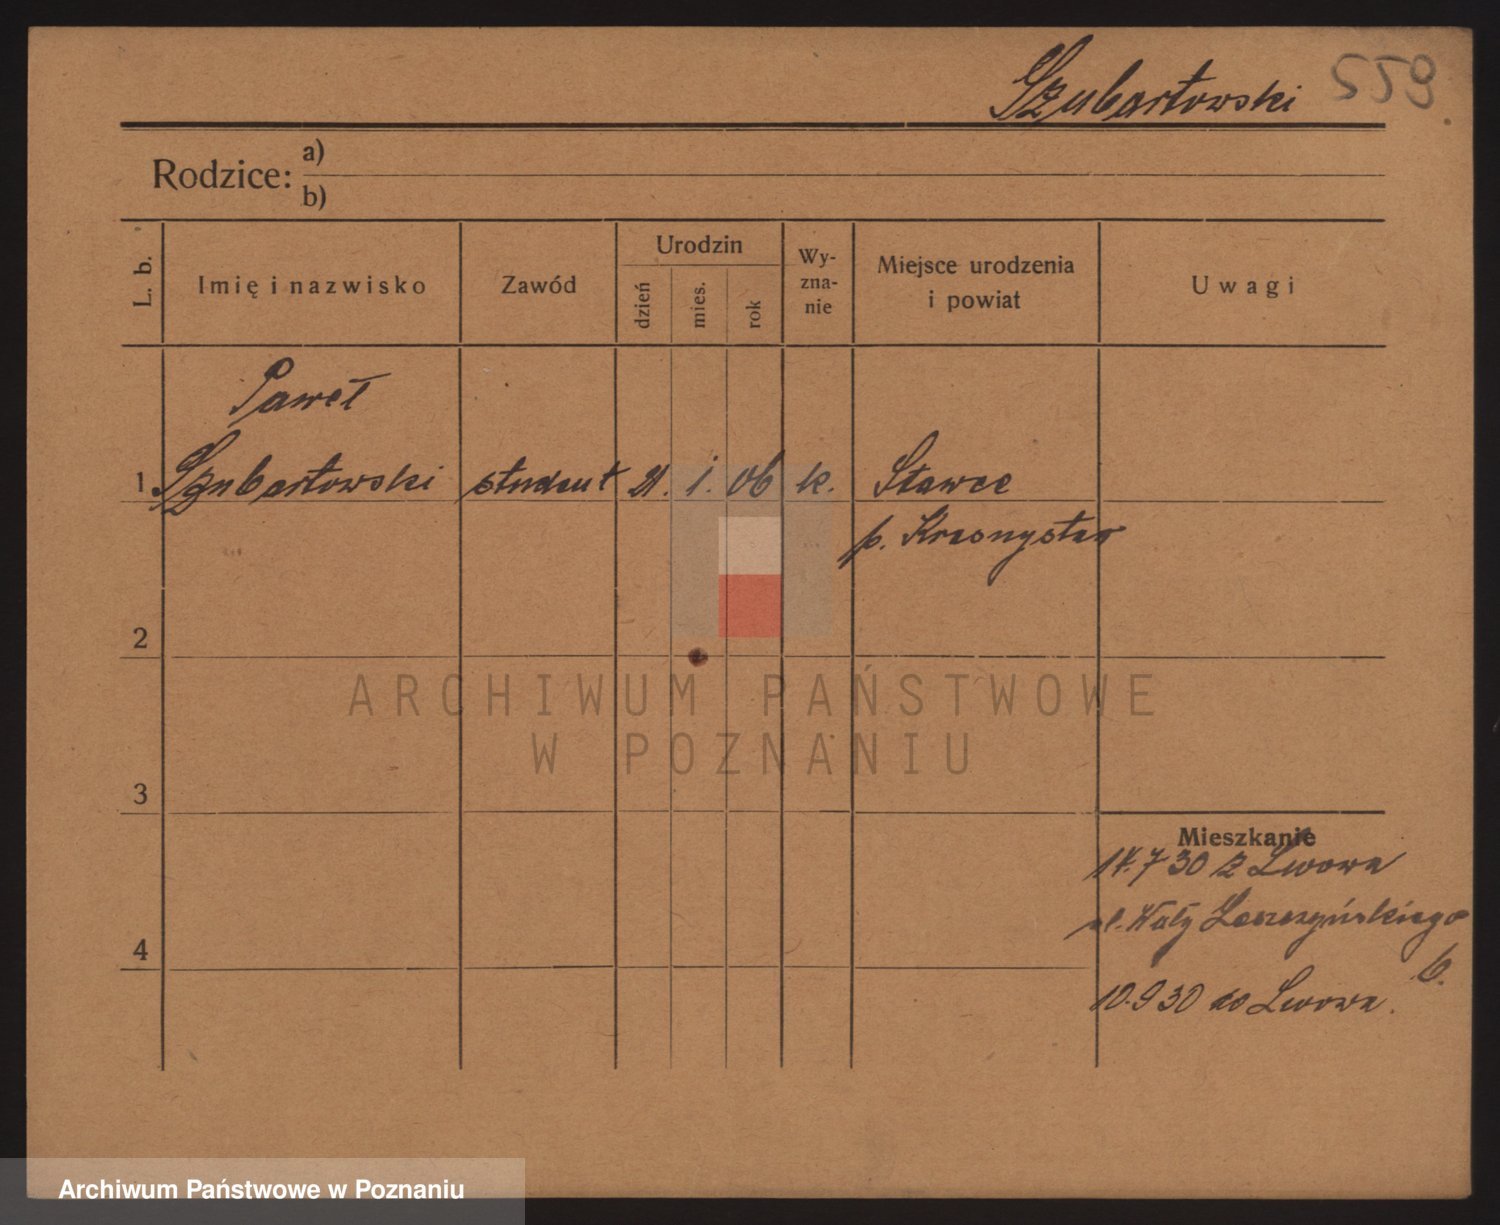 Szubartowski 559
Rodzice: a)
b)
L. b.
Imię i nazwisko
Zawód
Urodzin
dzień
mies.
rok
Wy-
zna-
nie
Miejsce urodzenia
i powiat
Uwagi
Paweł
1 Szubartowski student 21. 1. 06 k. Stawce
p. Krasnystaw
2
ARCHIWUM PAŃSTWOWE
W POZNANIU
3
Mieszkanie
14.7 30 z Lwowa
ul. Wały Leszczyńskiego
6.
4
10.9 30 do Lwowa.
Archiwum Państwowe w Poznaniu